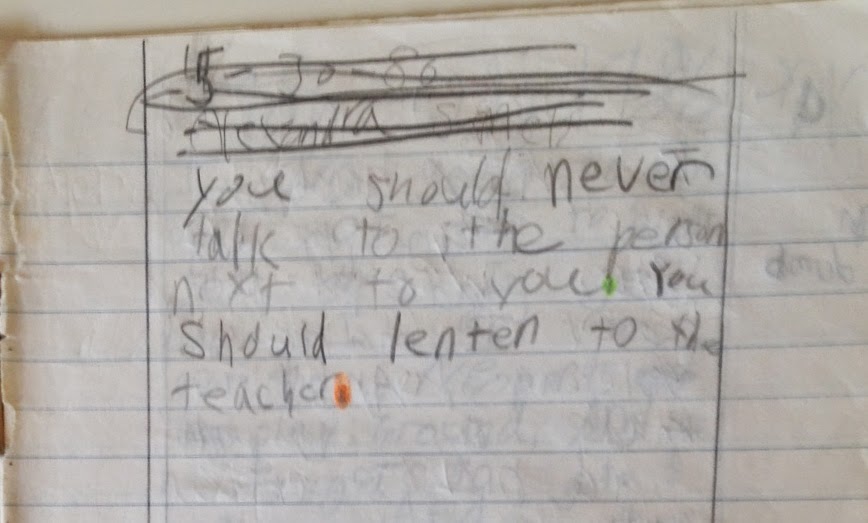 you should never
talk to the person
next to you. You
should lenten to the
teacher.